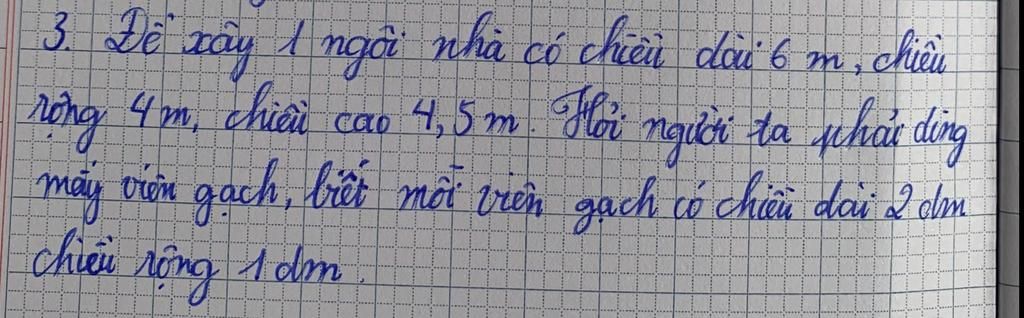 3. Để xây 1 ngôi nhà có chiều dài 6 m, chiều
rộng 4m, chiều cao 4,5m. Hỏi người ta phải dùng
mấy viên gạch, biết mỗi viên gạch có chiều dài 2 dm
chiều rộng 1 dm.